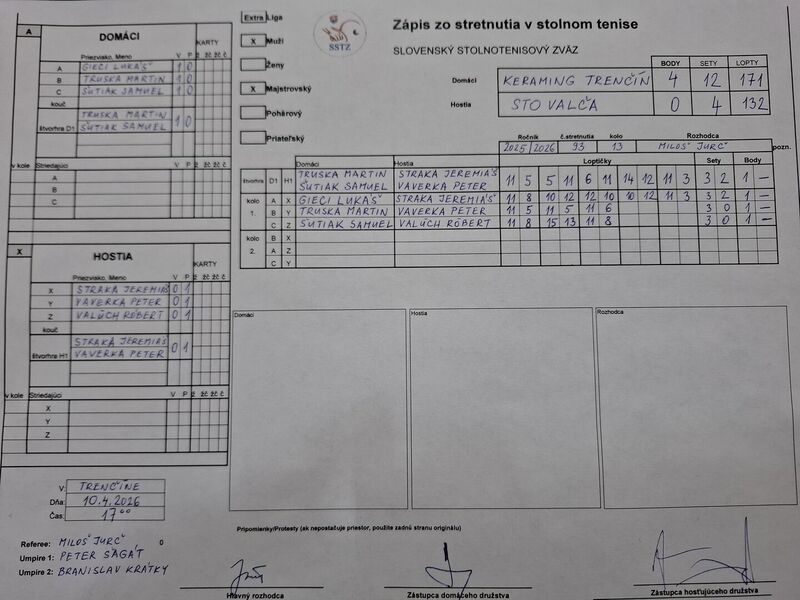 Extra Liga
X Muži
Ženy
X Majstrovský
Pohárový
Priateľský
SSTZ
Zápis zo stretnutia v stolnom tenise
SLOVENSKÝ STOLNOTENISOVÝ ZVÄZ
BODY SETY LOPTY
Domáci KERAMING TRENČÍN 4 12 171
Hostia STO VALČA 0 4 132
Ročník č.stretnutia kolo Rozhodca
2025 2026 93 13 MILOŠ JURČ pozn.
A
DOMÁCI
KARTY
Priezvisko, Meno V P ž žč žč č
A GIECI LUKÁŠ 1 0
B TRUSKA MARTIN 1 0
C ŠUTIAK SAMUEL 1 0
kouč
TRUSKA MARTIN
štvorhra D1 ŠUTIAK SAMUEL 1 0
v kole Striedajúci V P ž žč žč č
A
B
C
X
HOSTIA
KARTY
Priezvisko, Meno V P ž žč žč č
X STRAKA JEREMIÁŠ 0 1
Y VAVERKA PETER 0 1
Z VALÚCH RÓBERT 0 1
kouč
STRAKA JEREMIÁŠ
štvorhra H1 VAVERKA PETER 0 1
v kole Striedajúci V P ž žč žč č
X
Y
Z
Domáci Hostia Loptičky Sety Body
štvorhra D1 H1 TRUSKA MARTIN STRAKA JEREMIÁŠ
ŠUTIAK SAMUEL VAVERKA PETER 11 5 5 11 6 11 14 12 11 3 3 2 1 –
kolo A X GIECI LUKÁŠ STRAKA JEREMIÁŠ 11 8 10 12 12 10 10 12 11 3 3 2 1 –
1. B Y TRUSKA MARTIN VAVERKA PETER 11 5 11 5 11 6 3 0 1 –
C Z ŠUTIAK SAMUEL VALÚCH RÓBERT 11 8 15 13 11 8 3 0 1 –
kolo B X
2. A Z
C Y
Domáci Hostia Rozhodca
V: TRENČÍNE
Dňa: 10.4.2026
Čas: 17⁰⁰
Referee: MILOŠ JURČ 0
Umpire 1: PETER SÁGÁT
Umpire 2: BRANISLAV KRÁTKY
Pripomienky/Protesty (ak nepostačuje priestor, použite zadnú stranu originálu)
Hlavný rozhodca Zástupca domáceho družstva Zástupca hosťujúceho družstva